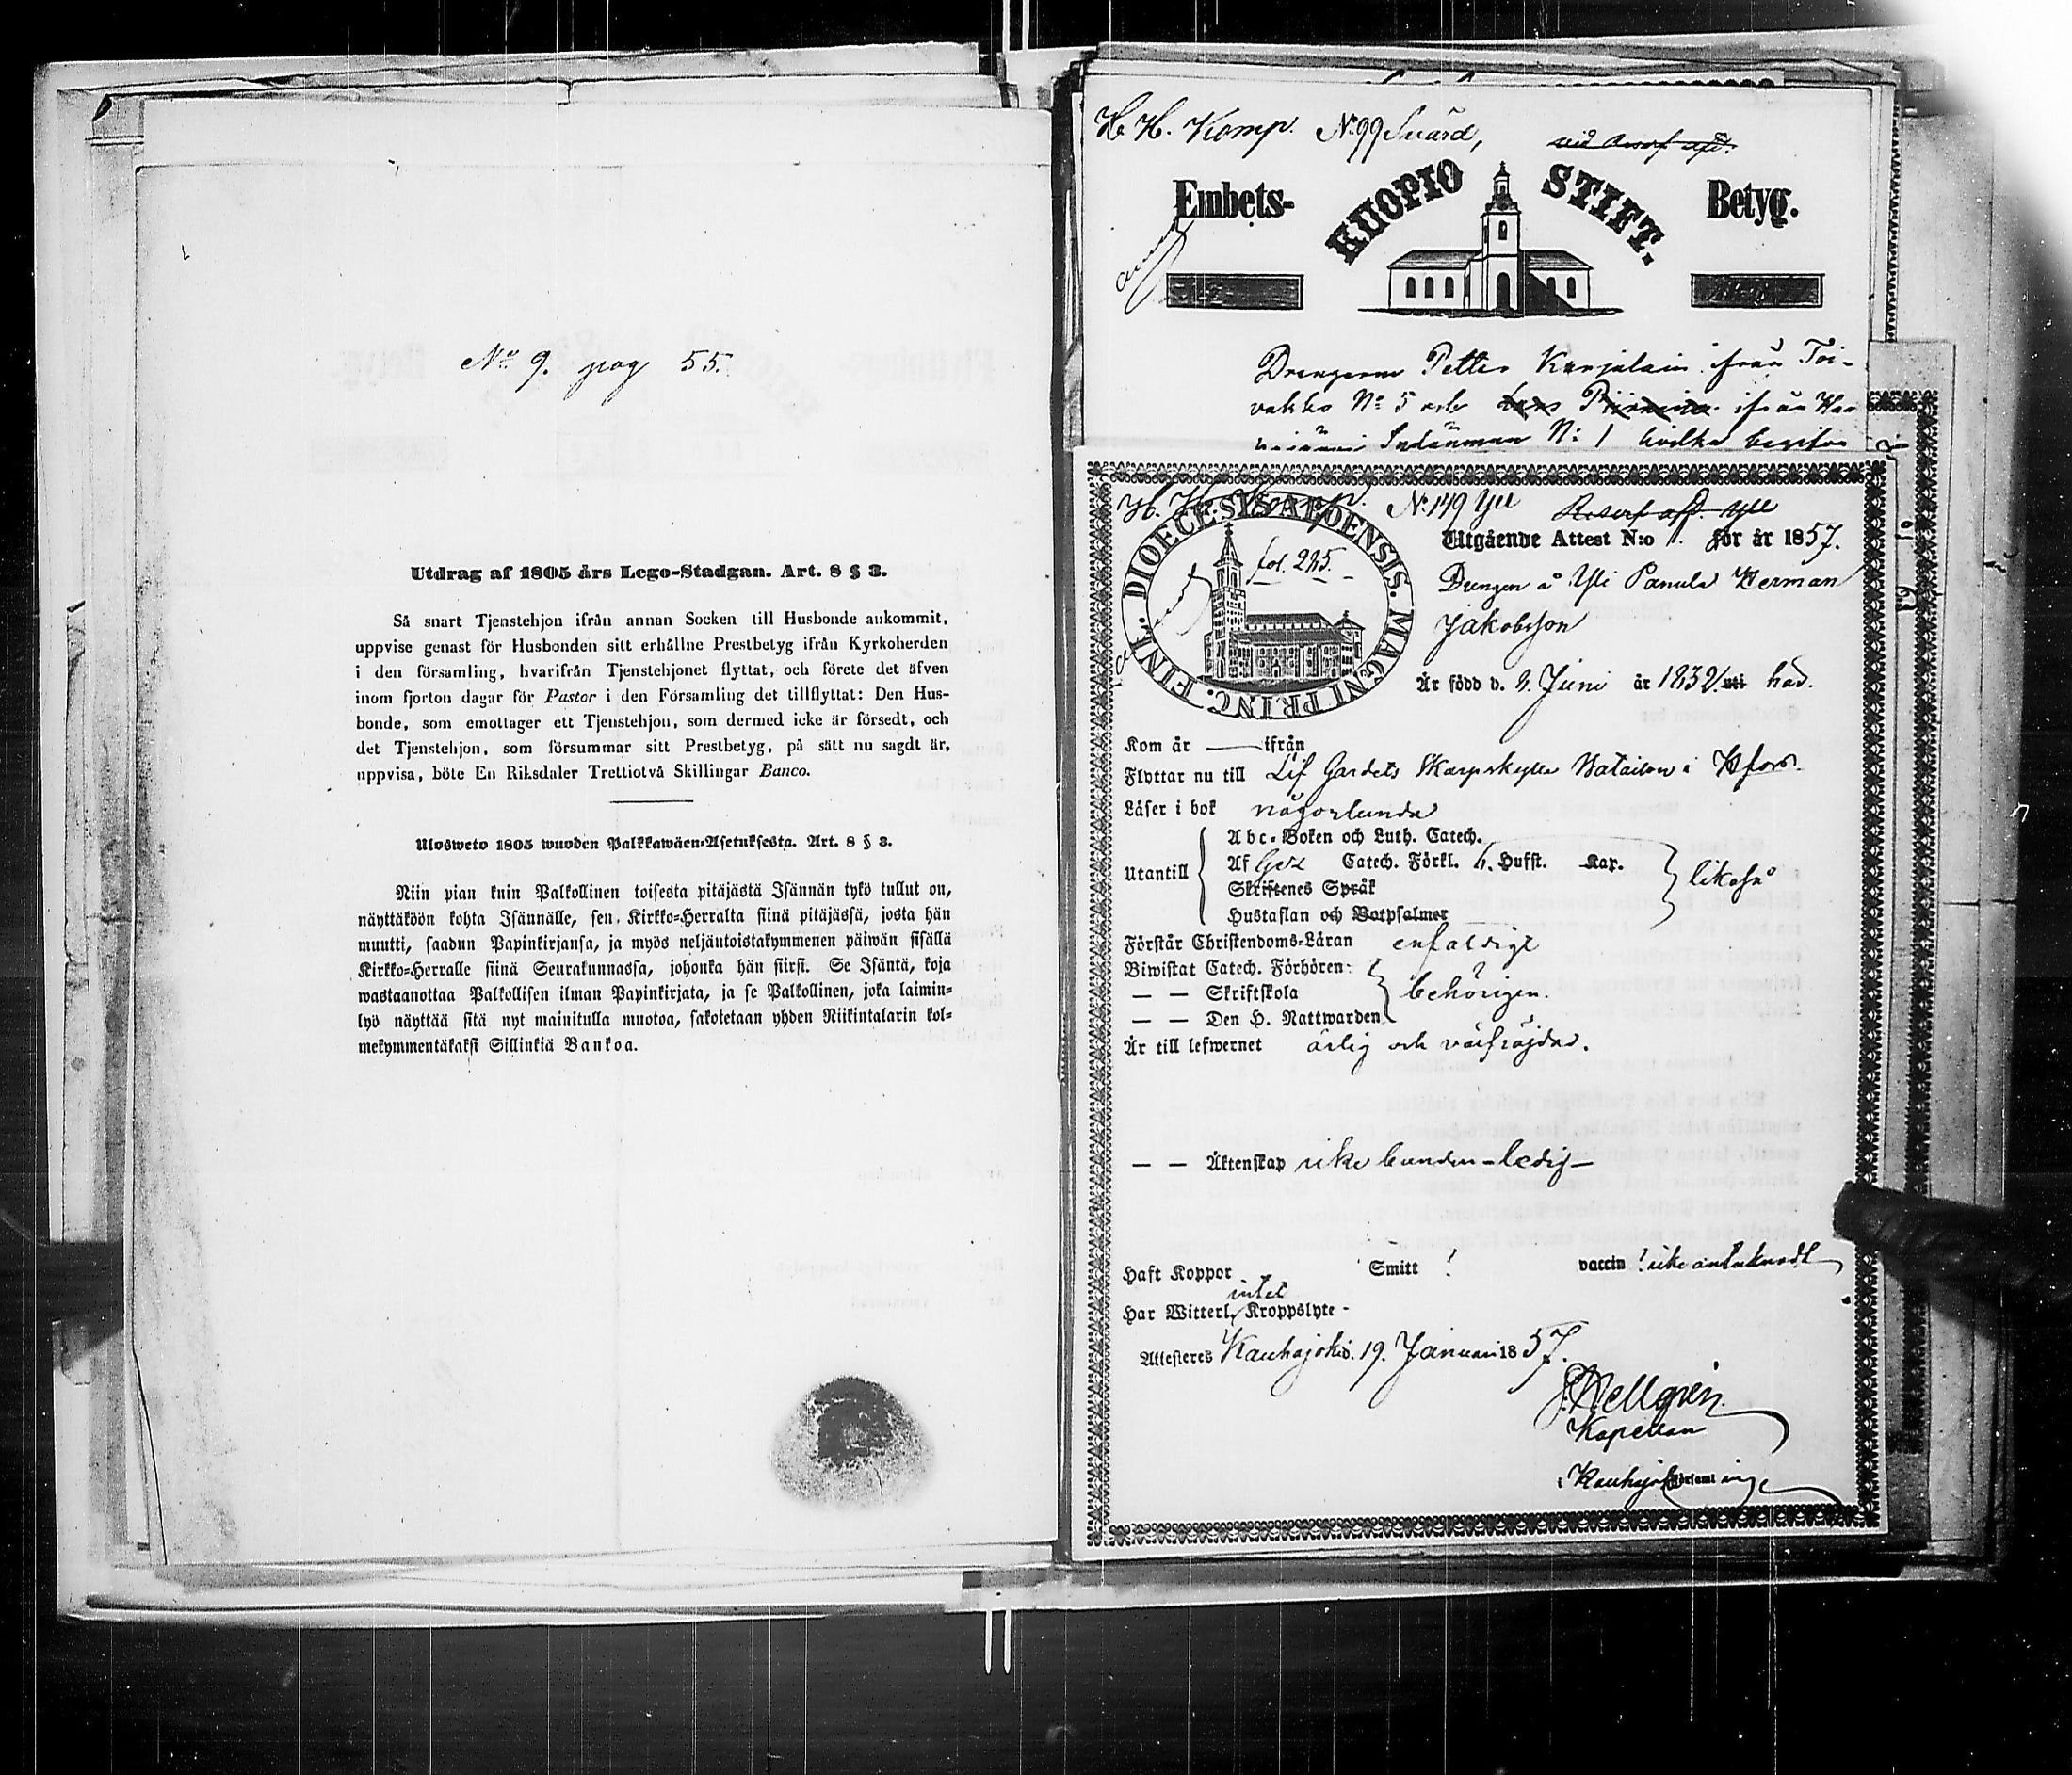 No 9. pag 55.
Utdrag af 1805 års Lego-Stadgan. Art. 8 § 3.
Så snart Tjenstehjon ifrån annan Socken till Husbonde ankommit,
uppvise genast för Husbonden sitt erhållne Prestbetyg ifrån Kyrkoherden
i den församling, hvarifrån Tjenstehjonet flyttat, och förete det äfven
inom fjorton dagar för Pastor i den Församling det tillflyttat: Den Hus-
bonde, som emottager ett Tjenstehjon, som dermed icke är försedt, och
det Tjenstehjon, som försummar sitt Prestbetyg, på sätt nu sagdt är,
uppvisa, böte En Riksdaler Trettiotvå Skillingar Banco.
Ulosweto 1805 wuoden Palkkawäen-Asetuksesta. Art. 8 § 3.
Niin pian kuin Palkollinen toisesta pitäjästä Isännän tykö tullut on,
näyttäköön kohta Isännälle, sen Kirkko-Herralta siinä pitäjässä, josta hän
muutti, saadun Papinkirjansa, ja myös neljäntoistakymmenen päiwän sisällä
Kirkko-Herralle siinä Seurakunnassa, johonka hän siirsi. Se Isäntä, koja
wastaanottaa Palkollisen ilman Papinkirjata, ja se Palkollinen, joka laimin-
lyö näyttää sitä nyt mainitulla muotoa, sakotetaan yhden Riikintalarin kol-
mekymmentäkaksi Sillinkiä Bankoa.
H. H. Komp. N:99 Svärd,
Embets- KUOPIO STIFT. Betyg.
Drengarne Petter Karjalain ifrån Toi-
vakko No 5 och Lars Piirainen ifrån
N: 1 hvilka begifva
H. H. Komp. N:149 Yli
DIOECESIS ABOENSIS. MAGNI PRINC. FINL.
fol. 225.
Utgående Attest N:o 1. för år 1857.
Drengen å Yli Panula Herman
Jakobsson
Är född d. 9. Juni år 1832. uti här.
Kom år — ifrån
Flyttar nu till Lif Gardets Skarpskytte Bataillon i Hfors.
Läser i bok någorlunda
Utantill
Abc-Boken och Luth. Catech.
Af Gez Catech. Förkl. h. Hufst. Kap.
Skriftenes Språk
Hustaflan och Botpsalmer
likaså
Förstår Christendoms-Läran enfaldigt
Biwistat Catech. Förhören
— — Skriftskola
— — Den H. Nattwarden
behörigen.
Är till lefwernet ärlig och välfräjdad.
— — Äktenskap icke bunden - ledig -
Haft Koppor Smitt ! vaccin ! icke antecknadt
Har Witterl. intet Kroppslyte -
Attesteres Kauhajoki d. 19. Januari 1857.
J. Hellgrén
Kapellan
i Kauhajoki Församling